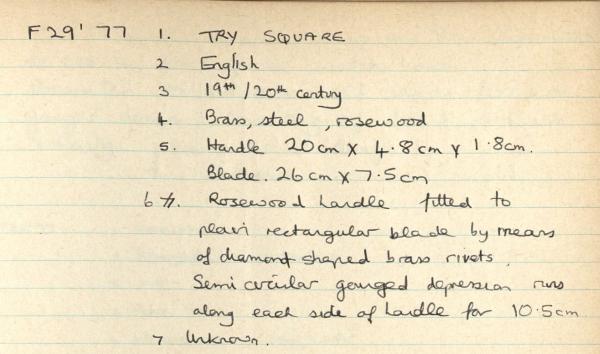 F29' 77 1. TRY SQUARE
2 English
3 19th / 20th century
4. Brass, steel, rosewood
5. Handle 20cm X 4.8cm X 1.8cm.
Blade. 26cm X 7.5cm
6 7. Rosewood handle fitted to
plain rectangular blade by means
of diamond shaped brass rivets.
Semi circular gouged depression runs
along each side of handle for 10.5cm
7 Unknown.